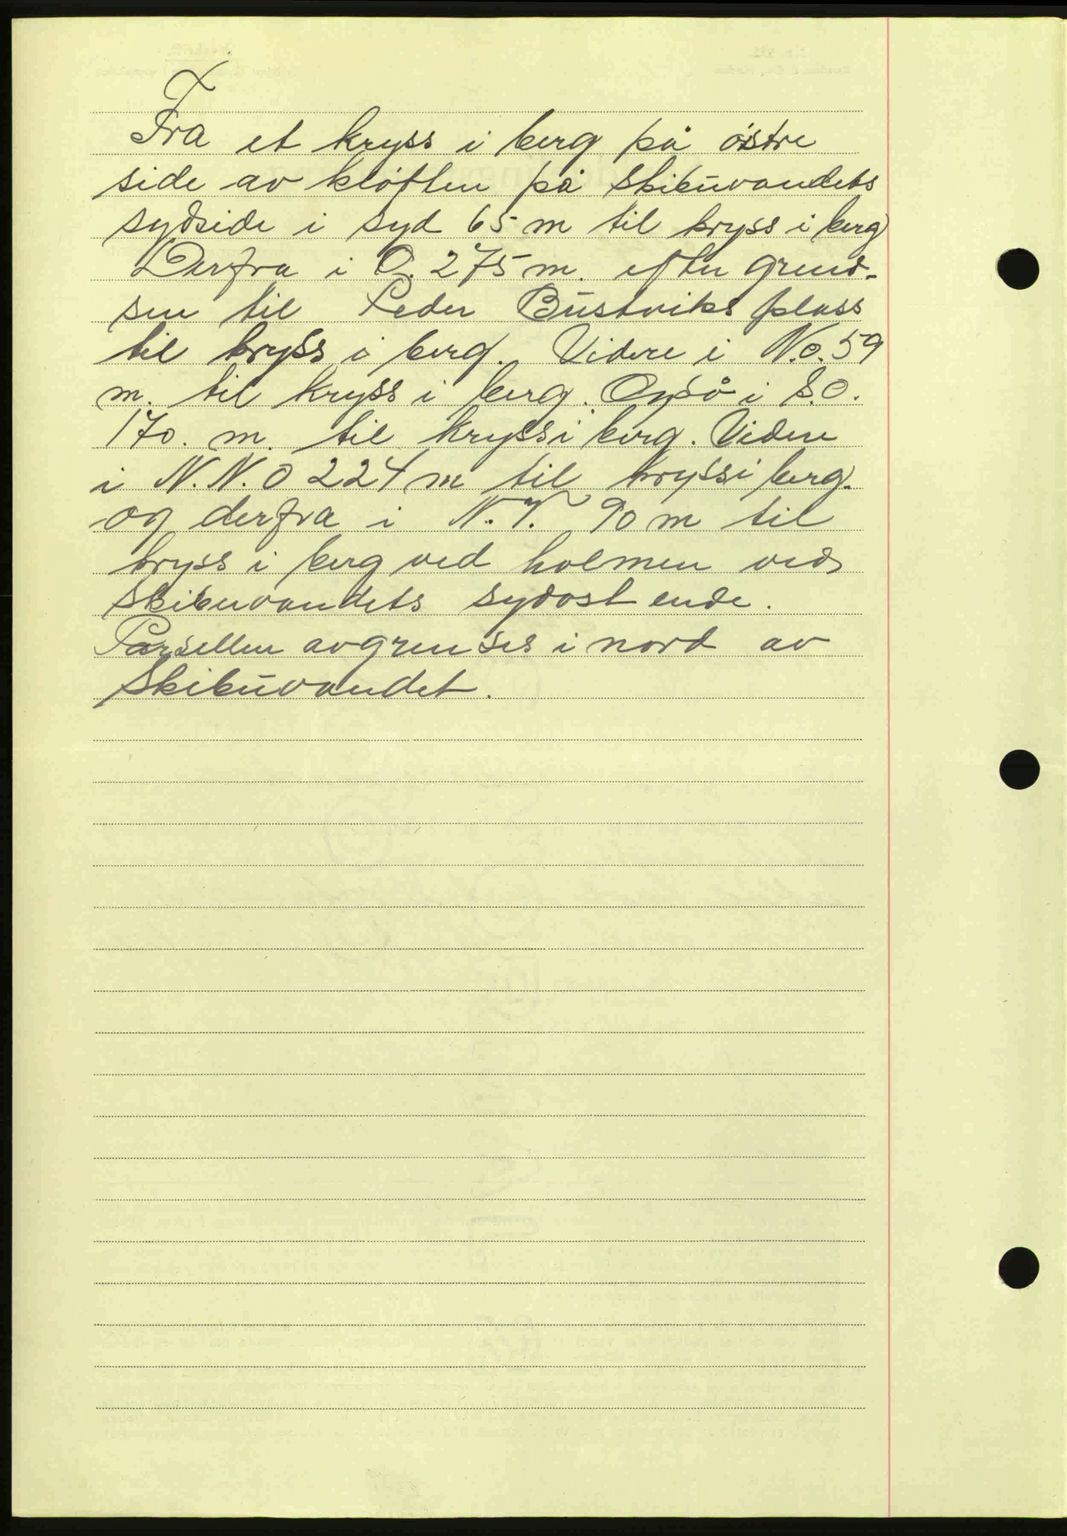 Fra et kryss i berg på østre
side av kløften på Skibuvandets
sydside i syd 65 m til kryss i berg
Derfra i O. 275 m. efter grend-
sen til Peder Bustviks plass
til kryss i berg. Videre i N.o. 59
m. til kryss i berg. Også i S.O.
170. m. til kryss i berg. Videre
i N.N.O 224 m til kryss i berg.
og derfra i N.V. 90 m til
kryss i berg ved holmen ved
Skibuvandets sydost ende.
Parsellen avgrenses i nord av
Skibuvandet.